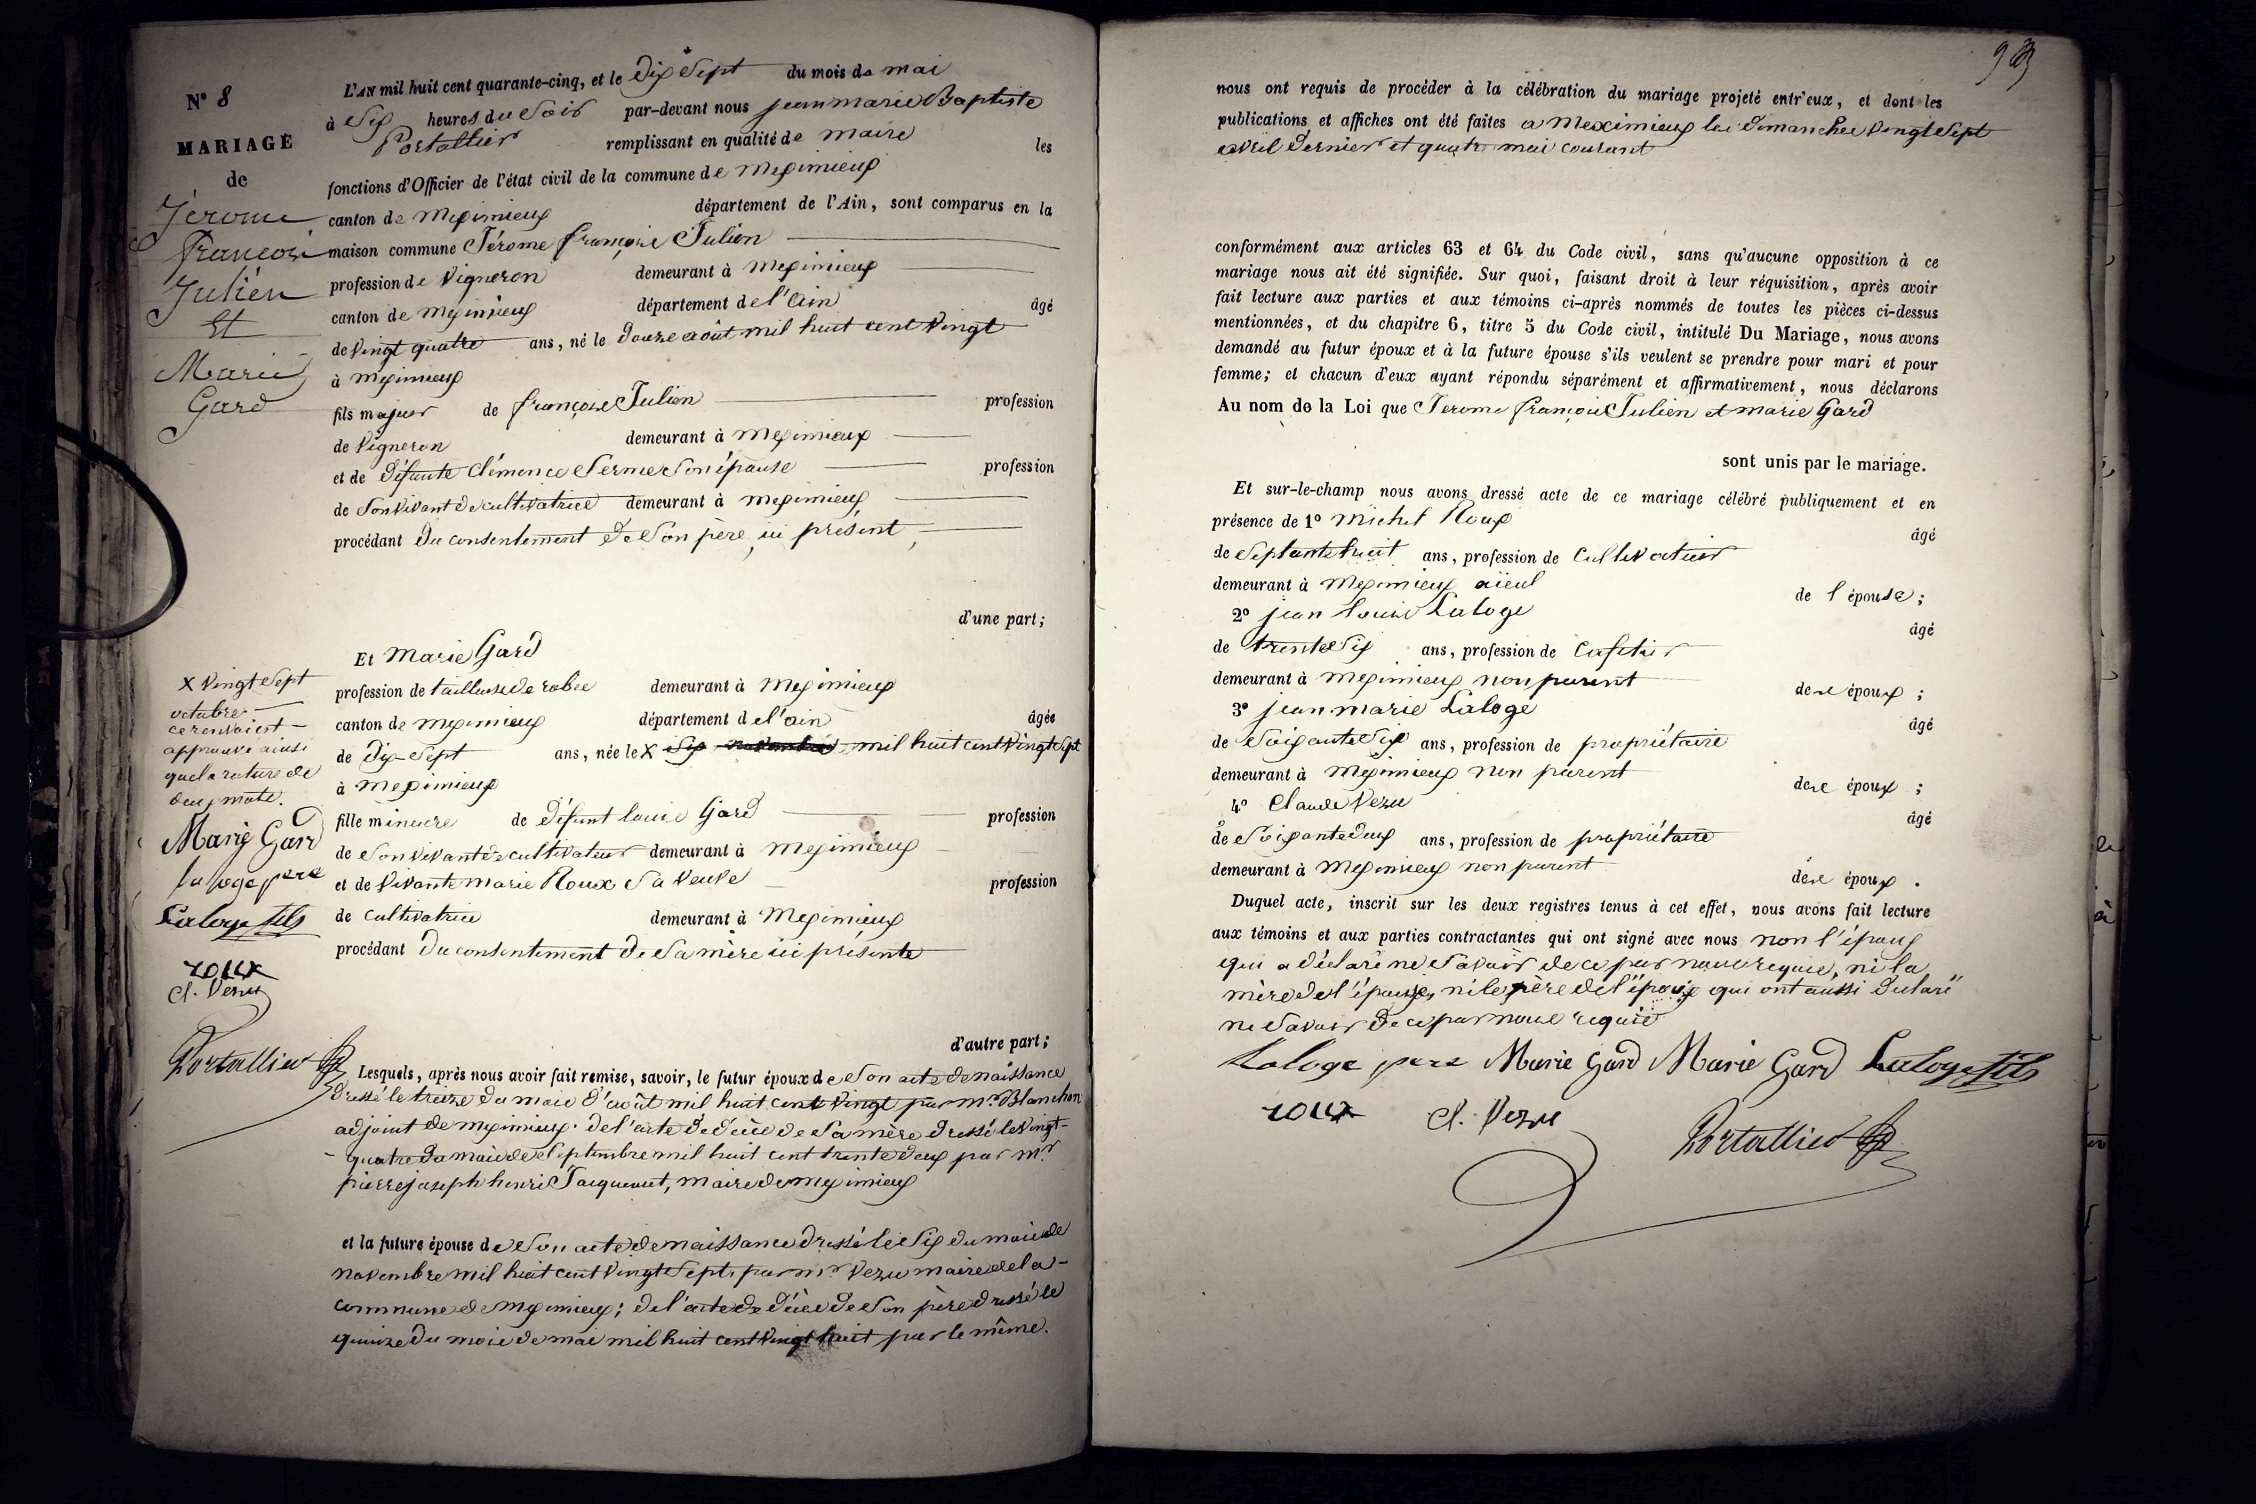 N° 8
MARIAGE
de
Jérome
françois
Julien
Et
Marie
Gard
L'AN mil huit cent quarante-cinq, et le dix Sept du mois de mai
à Six heures du Soir par-devant nous jean marie Baptiste
Portallier remplissant en qualité de maire les
fonctions d'Officier de l'état civil de la commune de meximieux
canton de meximieux département de l'Ain, sont comparus en la
maison commune Jérome françois Julien
profession de vigneron demeurant à meximieux
canton de meximieux département de l'ain âgé
de vingt quatre ans, né le douze août mil huit cent vingt
à meximieux
fils majeur de françois Julien profession
de vigneron demeurant à meximieux
et de défunte Clémence Serme Son épouse profession
de Son vivant de cultivatrice demeurant à meximieux
procédant du consentement de Son père, ici présent,
d'une part;
Et Marie Gard
profession de tailleuse de robes demeurant à meximieux
canton de meximieux département de l'ain âgée
de dix-Sept ans, née le X Six novembre mil huit cent vingt Sept
à meximieux
fille mineure de défunt louis Gard profession
de Son vivant de cultivateur demeurant à meximieux
et de vivante marie Roux Sa veuve profession
de cultivatrice demeurant à Meximieux
procédant du consentement de Sa mère ici présente
d'autre part;
X vingt Sept
octobre
ce renvoi est
approuvé ainsi
que la rature de
deux mots.
Marie Gard
laloge pere
Laloge fils
roux
Cl. Vezu
Portallier
Lesquels, après nous avoir fait remise, savoir, le futur époux de Son acte de naissance
dressé le treize du mois d'août mil huit cent vingt par mr Blanchon
adjoint de meximieux. de l'acte de décès de Sa mère dressé le vingt-
quatre du mois de Septembre mil huit cent trente deux par mr
pierre joseph henri Jacquemet, maire de meximieux
et la future épouse de Son acte de naissance dressé le Six du mois de
novembre mil huit cent vingt Sept, par mr Vezu maire de la
commune de meximieux; de l'acte de décès de Son père dressé le
quinze du mois de mai mil huit cent vingt huit par le même.
nous ont requis de procéder à la célébration du mariage projeté entr'eux, et dont les
publications et affiches ont été faites a Meximieux les dimanches vingt Sept
avril dernier et quatre mai courant
conformément aux articles 63 et 64 du Code civil, sans qu'aucune opposition à ce
mariage nous ait été signifiée. Sur quoi, faisant droit à leur réquisition, après avoir
fait lecture aux parties et aux témoins ci-après nommés de toutes les pièces ci-dessus
mentionnées, et du chapitre 6, titre 5 du Code civil, intitulé Du Mariage, nous avons
demandé au futur époux et à la future épouse s'ils veulent se prendre pour mari et pour
femme; et chacun d'eux ayant répondu séparément et affirmativement, nous déclarons
Au nom de la Loi que Jerome françois Julien et marie Gard
sont unis par le mariage.
Et sur-le-champ nous avons dressé acte de ce mariage célébré publiquement et en
présence de 1° Michel Roux âgé
de Septante huit ans, profession de Cultivateur
demeurant à meximieux aïeul de l'épouse;
2° jean louis Laloge âgé
de trente Six ans, profession de Cafetier
demeurant à meximieux non parent des époux;
3° jean marie Laloge âgé
de Soixante Six ans, profession de propriétaire
demeurant à meximieux non parent des époux;
4° Claude Vezu âgé
de Soixante deux ans, profession de propriétaire
demeurant à Meximieux non parent des époux.
Duquel acte, inscrit sur les deux registres tenus à cet effet, nous avons fait lecture
aux témoins et aux parties contractantes qui ont signé avec nous non l'époux
qui a déclaré ne Savoir de ce par nous requis, ni la
mère de l'épouse, ni le père de l'époux qui ont aussi déclaré
ne Savoir de ce par nous requis
Laloge pere Marie Gard Marie Gard Laloge fils
roux Cl. Vezu Portallier